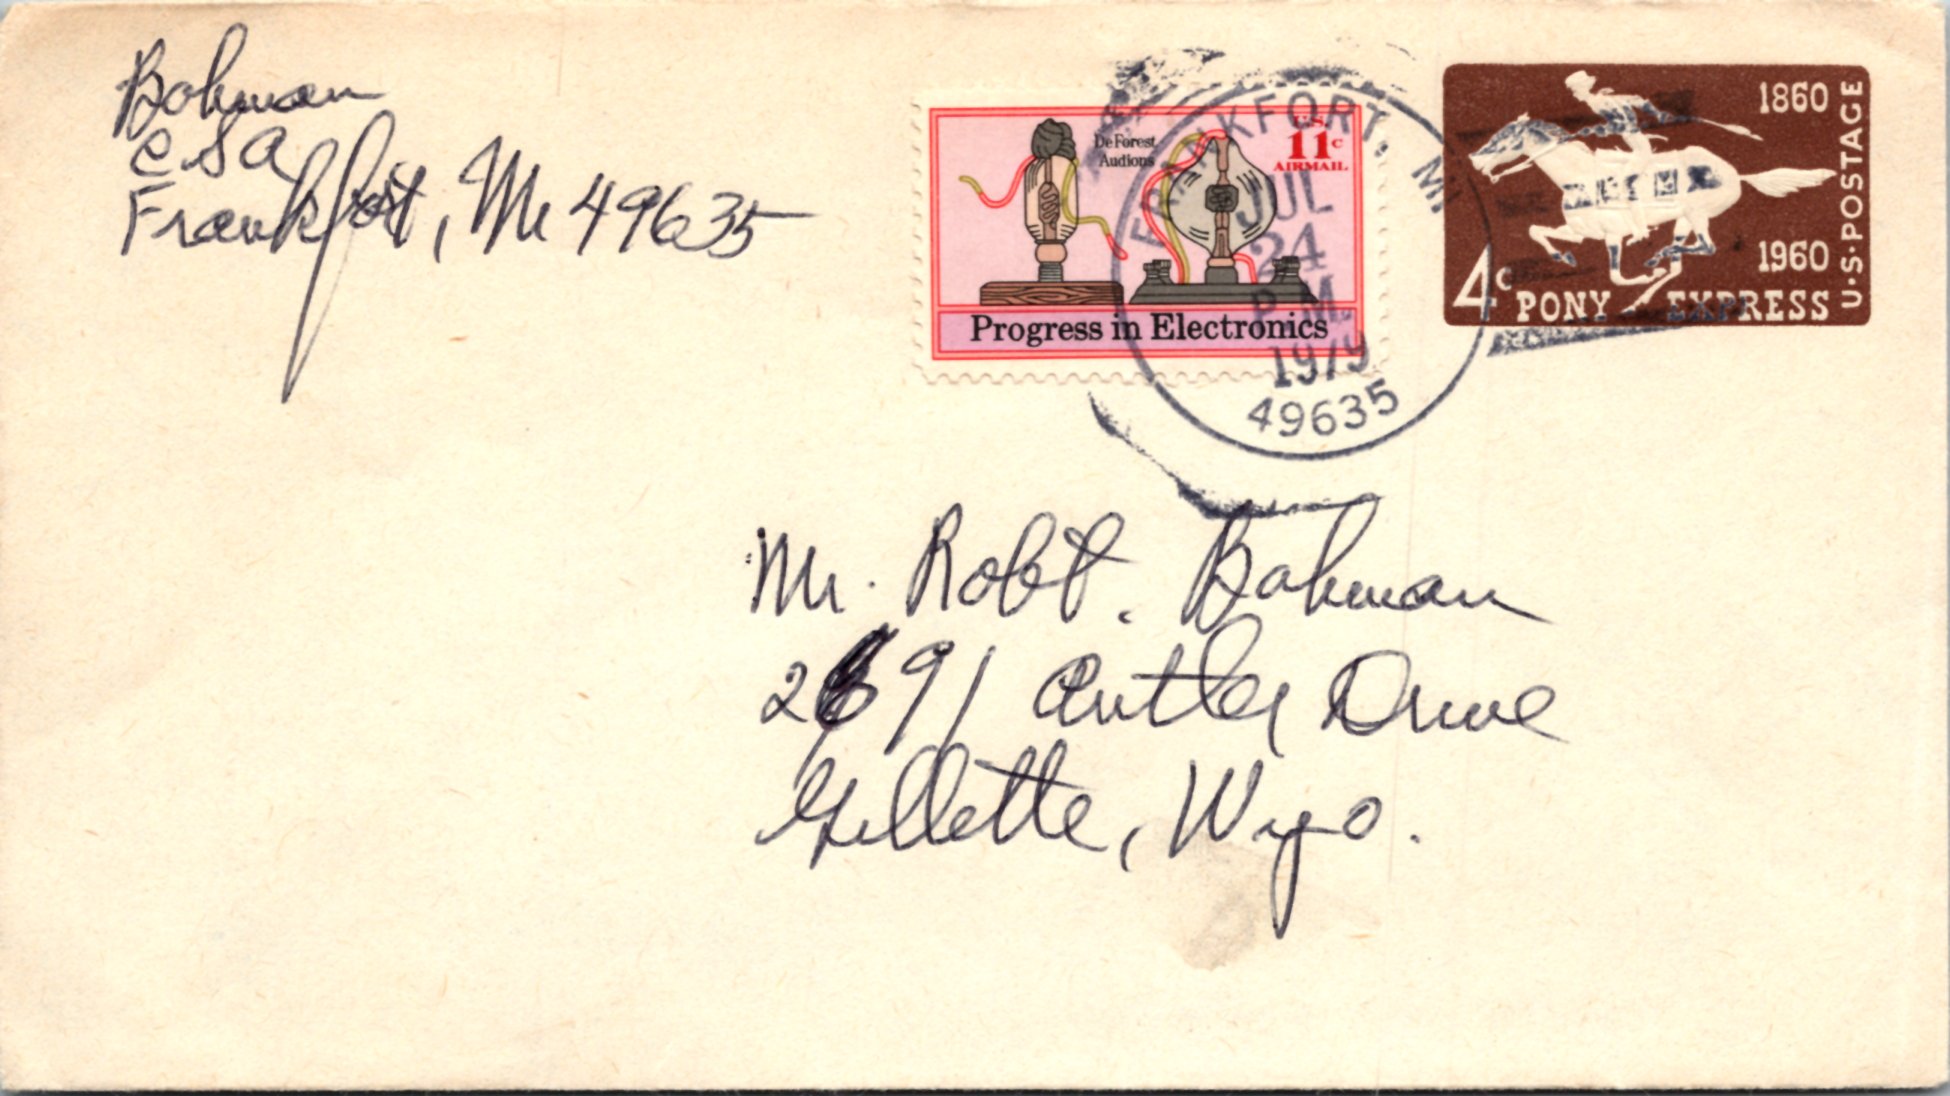 Bohman
CSA
Frankfort, Mi 49635
De Forest
Audions
U.S.
11c
AIRMAIL
Progress in Electronics
FRANKFORT, MI
JUL
24
P.M.
1979
49635
1860
1960
4c PONY EXPRESS
U.S. POSTAGE
Mr. Robt. Bohman
2691 Antler Drive
Gillette, Wyo.